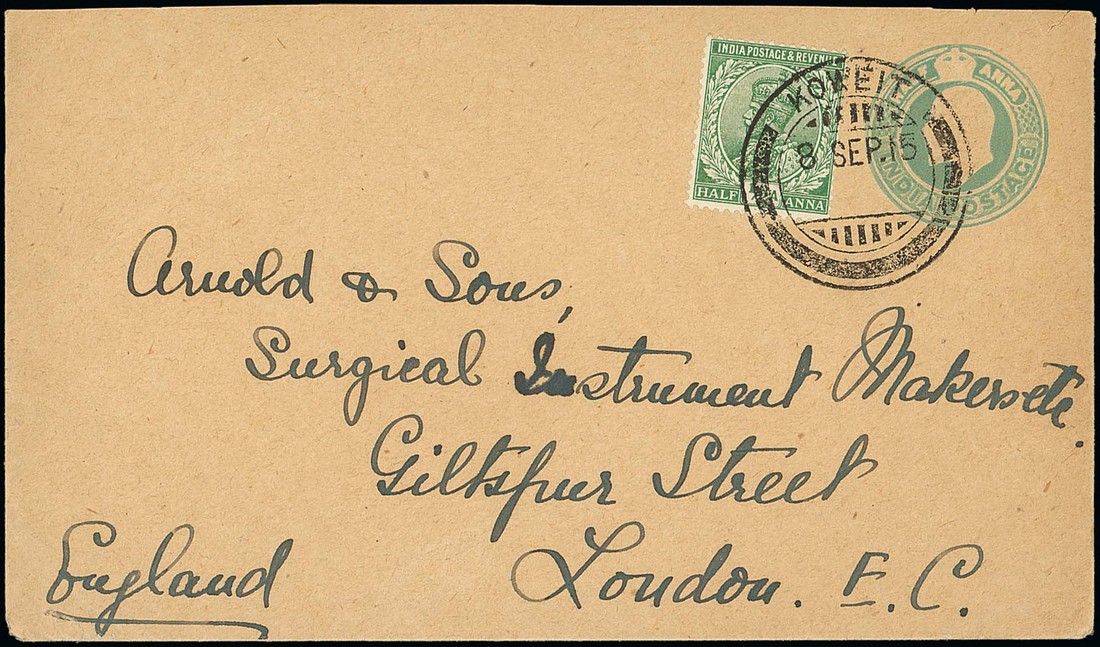 INDIA POSTAGE & REVENUE
HALF ANNA
KOWEIT
8 SEP.15
ANNA
INDIA POSTAGE
Arnold & Sons,
Surgical Instrument Makers etc.
Giltspur Street
London. E. C.
England